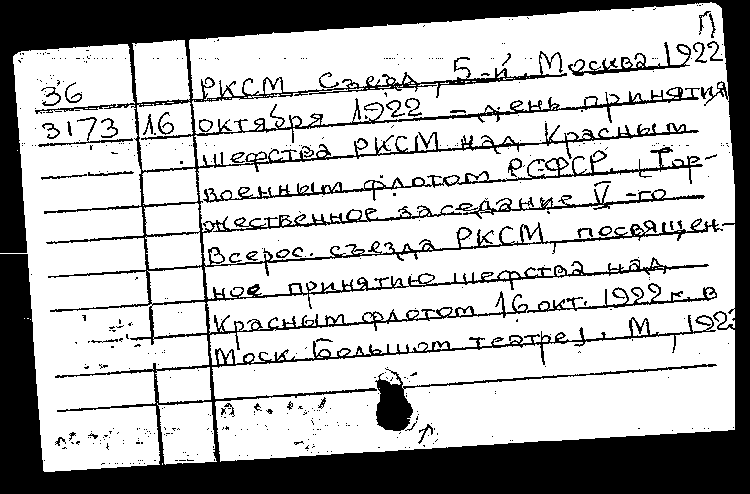 П
36 РКСМ. Съезд, 5-й. Москва. 1922
3173 16 октября 1922 - день принятия
шефства РКСМ над Красным
военным флотом РСФСР. [Тор-
жественное заседание V-го
Всерос. съезда РКСМ, посвящен-
ное принятию шефства над
Красным флотом 16 окт. 1922 г. в
Моск. Большом театре]. М., 1923